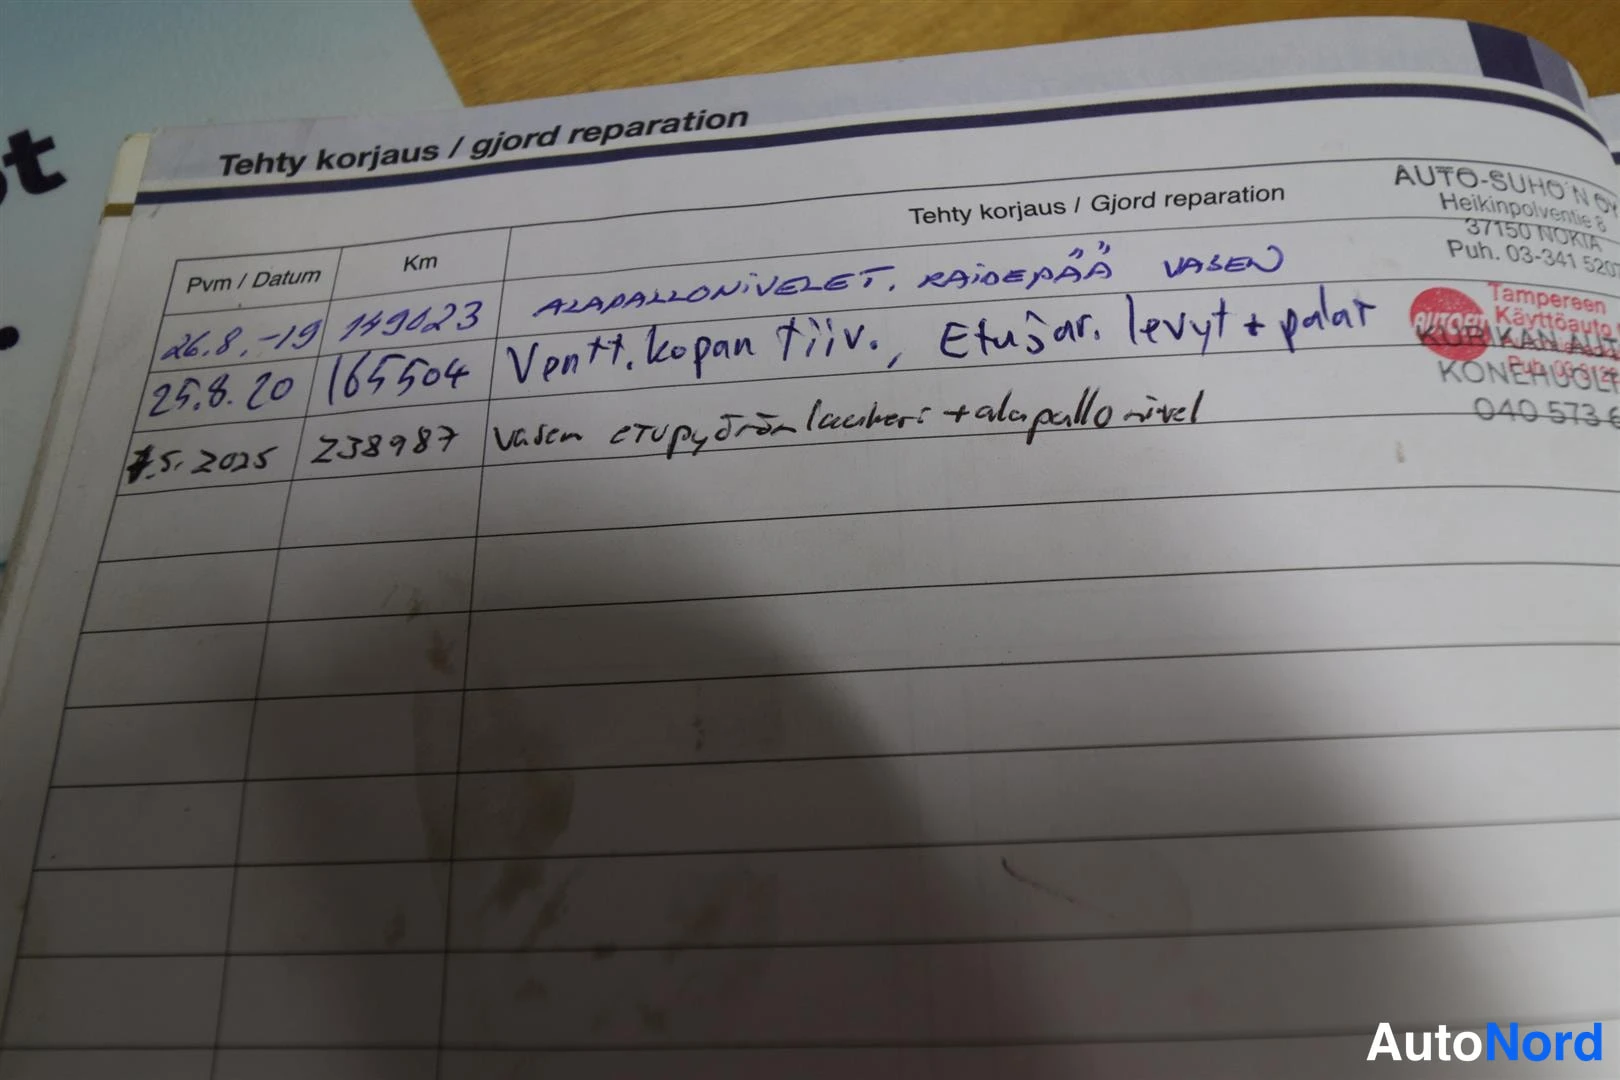 ot
Tehty korjaus / gjord reparation
Pvm / Datum Km Tehty korjaus / Gjord reparation
AUTO-SUHO'N OY
Heikinpolventie 8
37150 NOKIA
Puh. 03-341 5207
26.8.-19 149023 ALAPALLONIVELET, RAIDEPÄÄ VASEN
25.8.20 165504 Ventt. kopan tiiv., Etujar. levyt + palat
Tampereen
Käyttöauto
KURIKAN AUT
KONEHUOLT
040 573 6
.5.2025 238987 Vasen etupyörän laakeri + alapallonivel
AutoNord